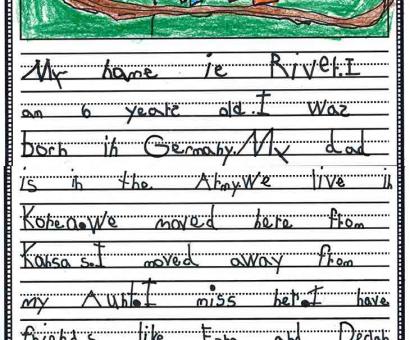 My name is River.I
am 6 years old.I was
born in Germany.My dad
is in the Army.We live in
Korea.We moved here from
Kansas.I moved away from
my Aunt.I miss her.I have
friends like and